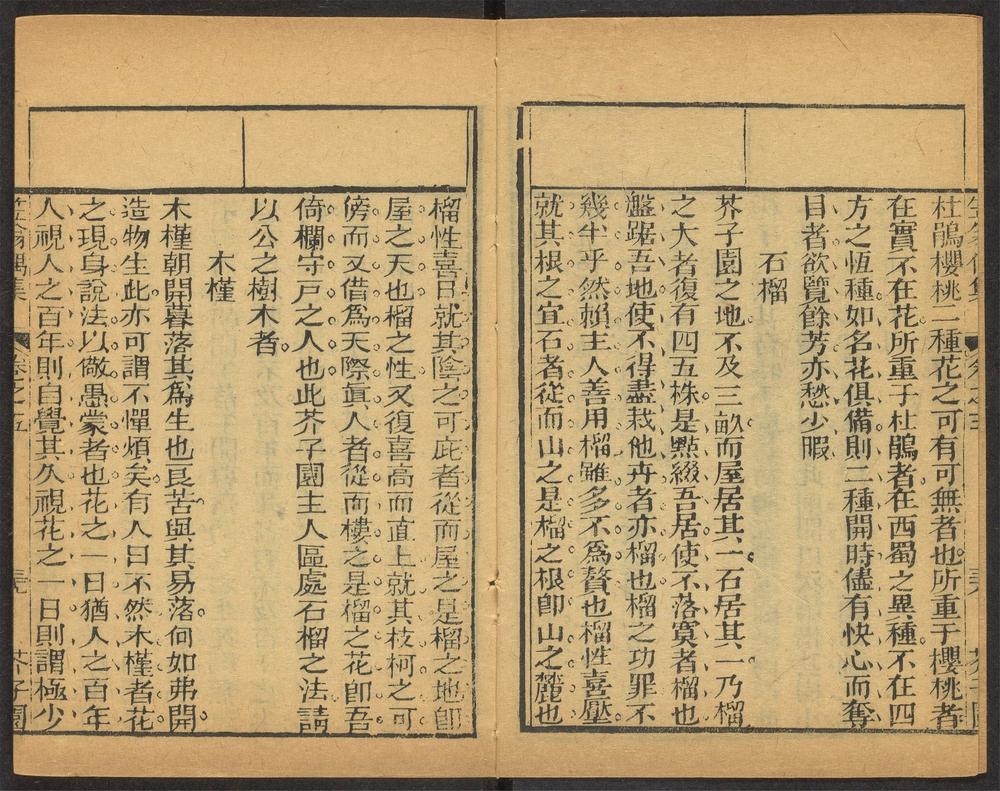 杜鵑櫻桃二種花之可有可無者也所重于櫻桃者
在實不在花所重于杜鵑者在西蜀之異種不在四
方之恆種如名花俱備則二種開時儘有快心而奪
目者欲覽餘芳亦愁少暇
石榴
芥子園之地不及三畝而屋居其一石居其一乃榴
之大者復有四五株是點綴吾居使不落寞者榴也
盤踞吾地使不得盡栽他卉者亦榴也榴之功罪不
幾半乎然賴主人善用榴雖多不為贅也榴性喜壓
就其根之宜石者從而山之是榴之根卽山之麓也
榴性喜日就其陰之可庇者從而屋之是榴之地卽
屋之天也榴之性又復喜高而直上就其枝柯之可
傍而又借為天際眞人者從而樓之是榴之花卽吾
倚欄守戶之人也此芥子園主人區處石榴之法請
以公之樹木者
木槿
木槿朝開暮落其為生也良苦與其易落何如弗開
造物生此亦可謂不憚煩矣有人曰不然木槿者花
之現身說法以儆愚蒙者也花之一日猶人之百年
人視人之百年則自覺其久視花之一日則謂極少
笠翁偶集 卷之五 芥子園